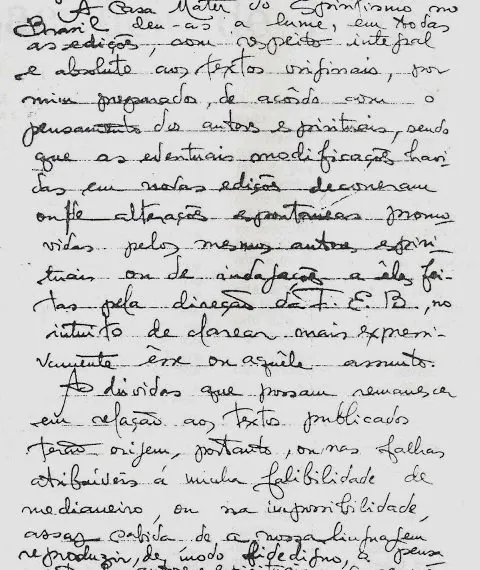 A Casa Mater do Espiritismo no
Brasil deu-as a lume, em todas
as edições, com respeito integral
e absoluto aos textos originais, por
mim preparados, de acôrdo com o
pensamento dos autores espirituais, sendo
que as eventuais modificações havi-
das em novas edições decorreram
ou de alterações espontâneas promo-
vidas pelos mesmos autores espiri-
tuais ou de indagações a êles fei-
tas pela direção da F. E. B., no
intuito de clarear mais expressi-
vamente êsse ou aquêle assunto.
As dúvidas que possam remanescer
em relação aos textos publicados
terão origem, portanto, ou nas falhas
atribuíveis á minha falibilidade de
medianeiro, ou na impossibilidade,
assaz sabida de a nossa linguagem
reproduzir, de modo fidedigno, a pensa
autores